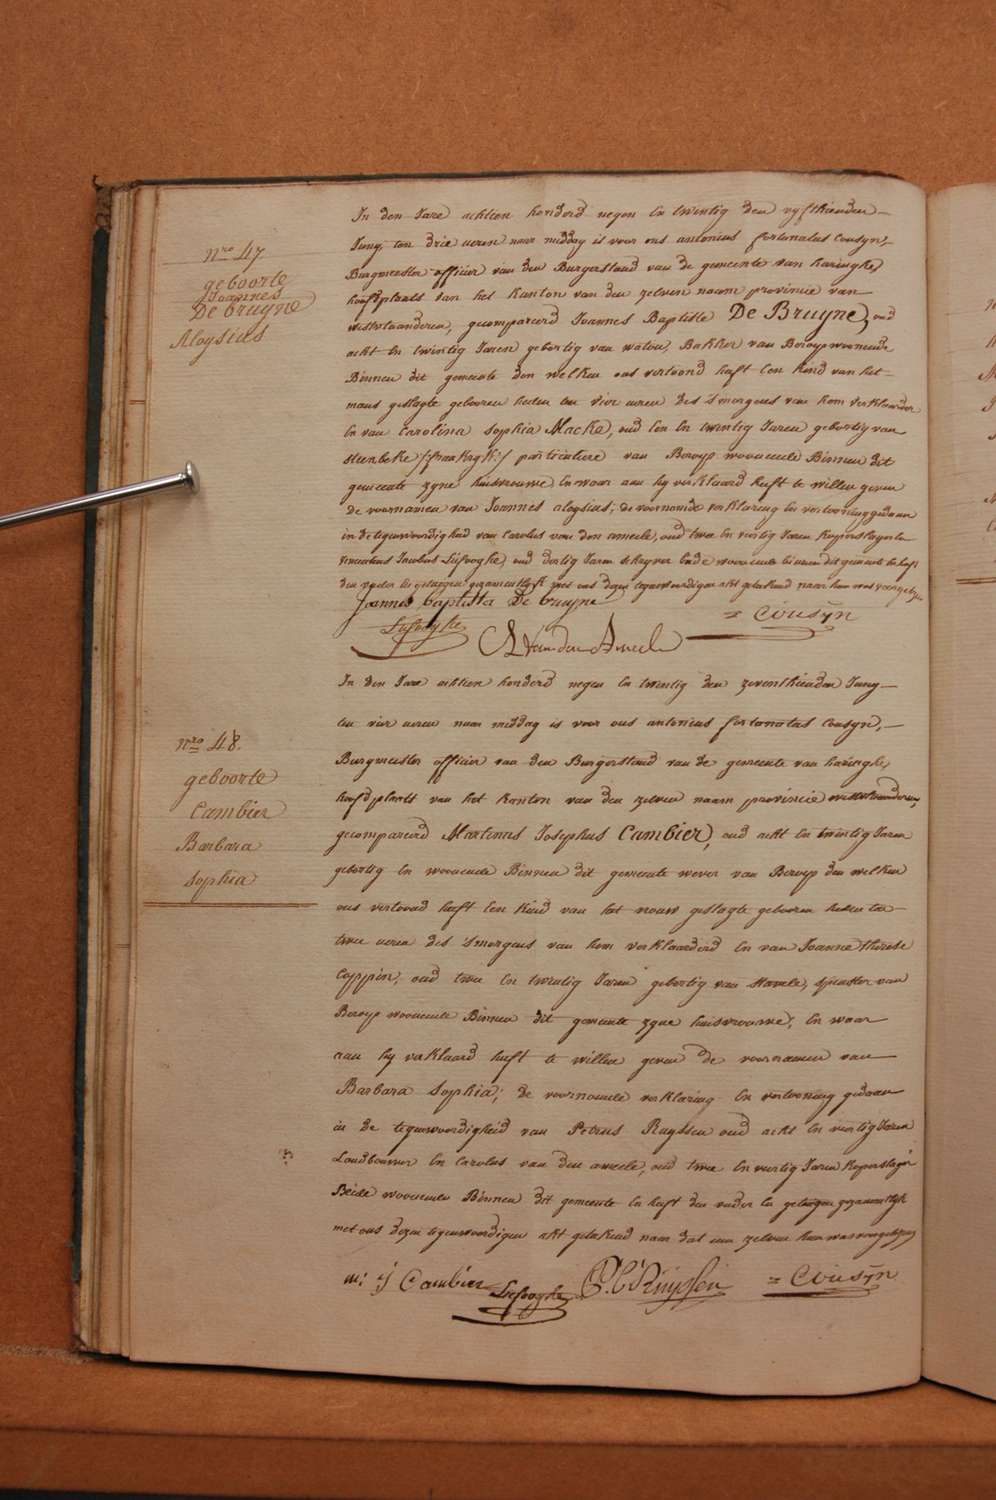 nro 47
geboorte
Joannes
De bruyne
Aloysius
In den Jare achtien honderd negen En twintig den vyfthienden
Juny ten drie ueren naer middag is voor ons antonius fortunatus Cousyn,
Burgmeester officier van den Burgerstand van de gemeente van haringhe,
hoofdplaats van het kanton van den zelven naem provincie van
westvlaanderen, gecompareerd Joannes Baptiste De Bruyne, oud
acht En twintig Jaren gebortig van watou, Bakker van Beroep woonende
Binnen dit gemeente den welken ons vertoond heeft Een kind van het
mans geslagte gebooren heden ten vier ueren des s'morgens van hem verklaarder
En van Carolina Sophia Macke, oud Een En twintig Jaren gebortig van
steenbeke /frankryk:/ particuliere van Beroep woonende Binnen dit
gemeente zyne huisvrouwe En waer aan hy verklaard heeft te willen geven
de voornamen van Joannes aloysius; de voornoemde verklaring En vertooning gedaan
in de tegenwoordigheid van Carolus van den ameele, oud twee En viertig Jaren koperslager En
Jacobus Liefooghe, oud dertig Jaren schryver Beide woonende binnen dit gemeente En heeft
den vader En getuigen gezamentlyk met ons dezen tegenwoordigen akt geteekend naer hun was voorgelezen
Joannes baptista De bruyne
Liefooghe
C Vanden Ameele
= Cousÿn
nro 48.
geboorte
Cambier
Barbara
sophia
In den Jare achtien honderd negen En twintig den zeventhienden Juny
ten vier ueren naer middag is voor ons antonius fortonatus Cousyn,
Burgmeester officier van den Burgerstand van de gemeente van haringhe,
hoofdplaats van het kanton van den zelven naem provincie westvlaanderen,
gecompareerd Martinus Josephus Cambier, oud acht En twintig Jaren
gebortig En woonende Binnen dit gemeente wever van Beroep den welken
ons vertoond heeft Een kind van het vrouw geslagte gebooren heden ten
twee ueren des s'morgens van hem verklaarderd En van Joanne Therese
Coppin, oud twee En twintig Jaren gebortig van stavele, spinster van
Beroep woonende Binnen dit gemeente zyne huisvrouwe; En waer
aan hy verklaard heeft te willen geven de voornamen van
Barbara Sophia; de voornoemde verklaring En vertooning gedaan
in de tegenwoordigheid van Petrus Ruyssen oud acht En viertig Jaren
Landbouwer En Carolus van den ameele, oud twee En viertig Jaren koperslager
Beide woonende Binnen dit gemeente En heeft den vader En getuigen gezamentlyk
met ons dezen tegenwoordigen akt geteekend naer dat een zelven hun was voorgelezen
m: j Cambier
Liefooghe
P: C Ruyssen
= Cousÿn